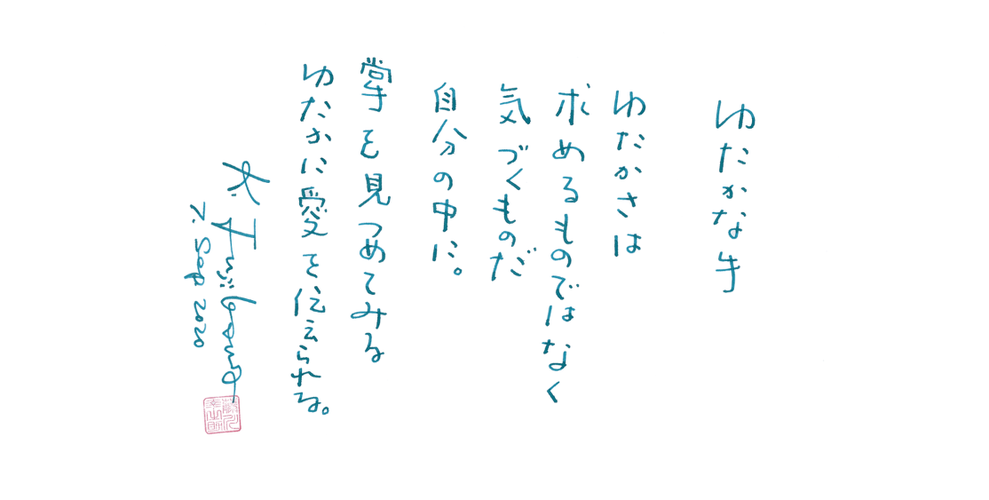 ゆたかな手
ゆたかさは
求めるものではなく
気づくものだ
自分の中に。
掌を見つめてみる
ゆたかに愛を伝えられる。
K. Fujikawa
7. Sep 2020